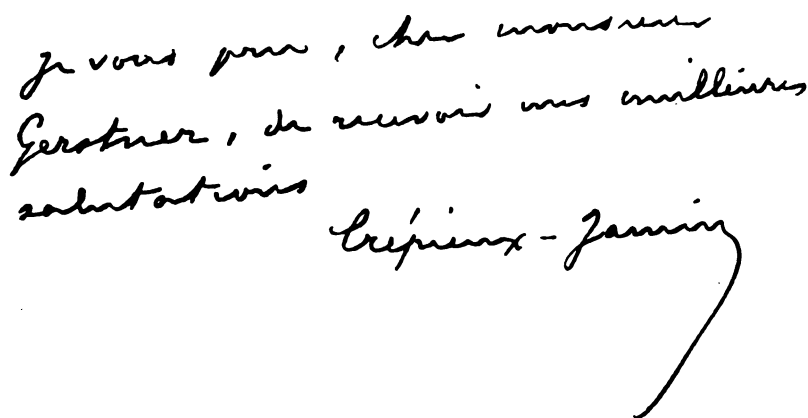 Je vous prie, cher monsieur
Gerstner, de recevoir mes meilleures
salutations
Crépieux-Jamin